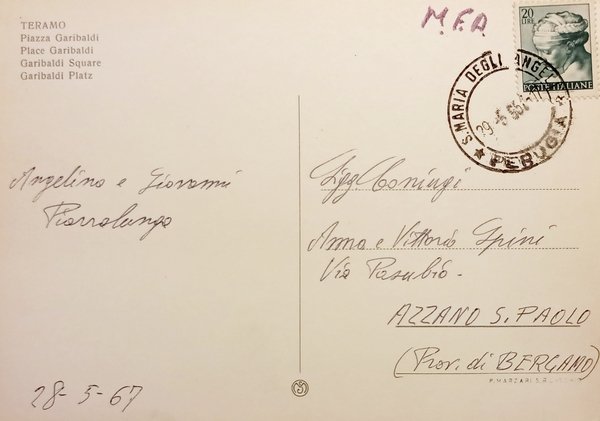 TERAMO
Piazza Garibaldi
Place Garibaldi
Garibaldi Square
Garibaldi Platz
M.F.A
20
LIRE
POSTE ITALIANE
S. MARIA DEGLI ANGELI
PERUGIA
Angelina e Giovanni
Piazzolunga
28-5-67
Sigg. Coniugi
Anna e Vittorio Spini
Via Pasubio.
AZZANO S. PAOLO
(Prov. di BERGAMO)